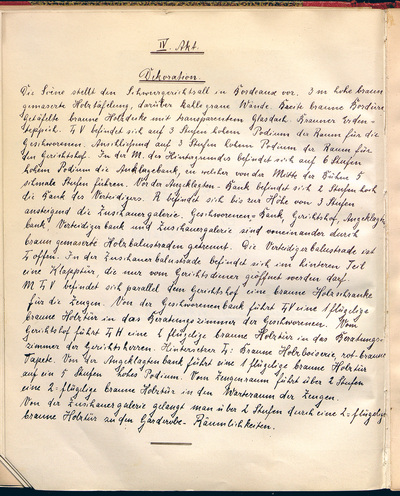 IV. Akt.
Dekoration.
Die Scene stellt den Schwurgerichtssall in Bordeaux vor. 3 m hohe braun
gemaserte Holztäfelung, darüber kalkgraue Wände. Breite braune Bordüre
Getäfelte braune Holzdecke mit transparentem Glasdach. Brauner Boden-
teppich. L V befindet sich auf 3 Stufen hohem Podium der Raum für die
Geschworenen. Anschließend auf 3 Stufen hohem Podium der Raum für
den Gerichtshof. In der M. des Hintergrundes befindet sich auf 6 Stufen
hohem Podium die Anklagebank, zu welcher von der Mitte der Bühne 5
schmale Stufen führen. Vor der Angeklagten-Bank befindet sich 2 Stufen hoch
die Bank des Verteidigers. R befindet sich bis zur Höhe von 3 Stufen
ansteigend die Zuschauergalerie. Geschworenen-Bank, Gerichtshof, Angeklagten
bank, Verteidigerbank und Zuschauergalerie sind voneinander durch
braun gemaserte Holzbalustraden getrennt. Die Verteidigerbalustrade ist
L offen. In der Zuschauerbalustrade befindet sich im hinteren Teil
eine Klapptür, die nur vom Gerichtsdiener geöffnet werden darf.
M L V befindet sich parallel dem Gerichtshof eine braune Holzschranke
für die Zeugen. Von der Geschworenenbank führt L V eine 1 flügelige
braune Holztür in das Beratungszimmer der Geschworenen. Vom
Gerichtshof führt L H eine 1 flügelige braune Holztür in das Beratungs-
zimmer der Gerichtsherren. Hintersetzer L: Braune Holzboiserie, rot-braune
Tapete. Von der Angeklagtenbank führt eine 1 flügelige braune Holztür
auf ein 5 Stufen hohes Podium. Vom Zeugenraum führt über 2 Stufen
eine 2-flüglige braune Holztür in den Warteraum der Zeugen.
Von der Zuschauergalerie gelangt man über 2 Stufen durch eine 2-flügelige
braune Holztür an den Garderobe-Räumlichkeiten.